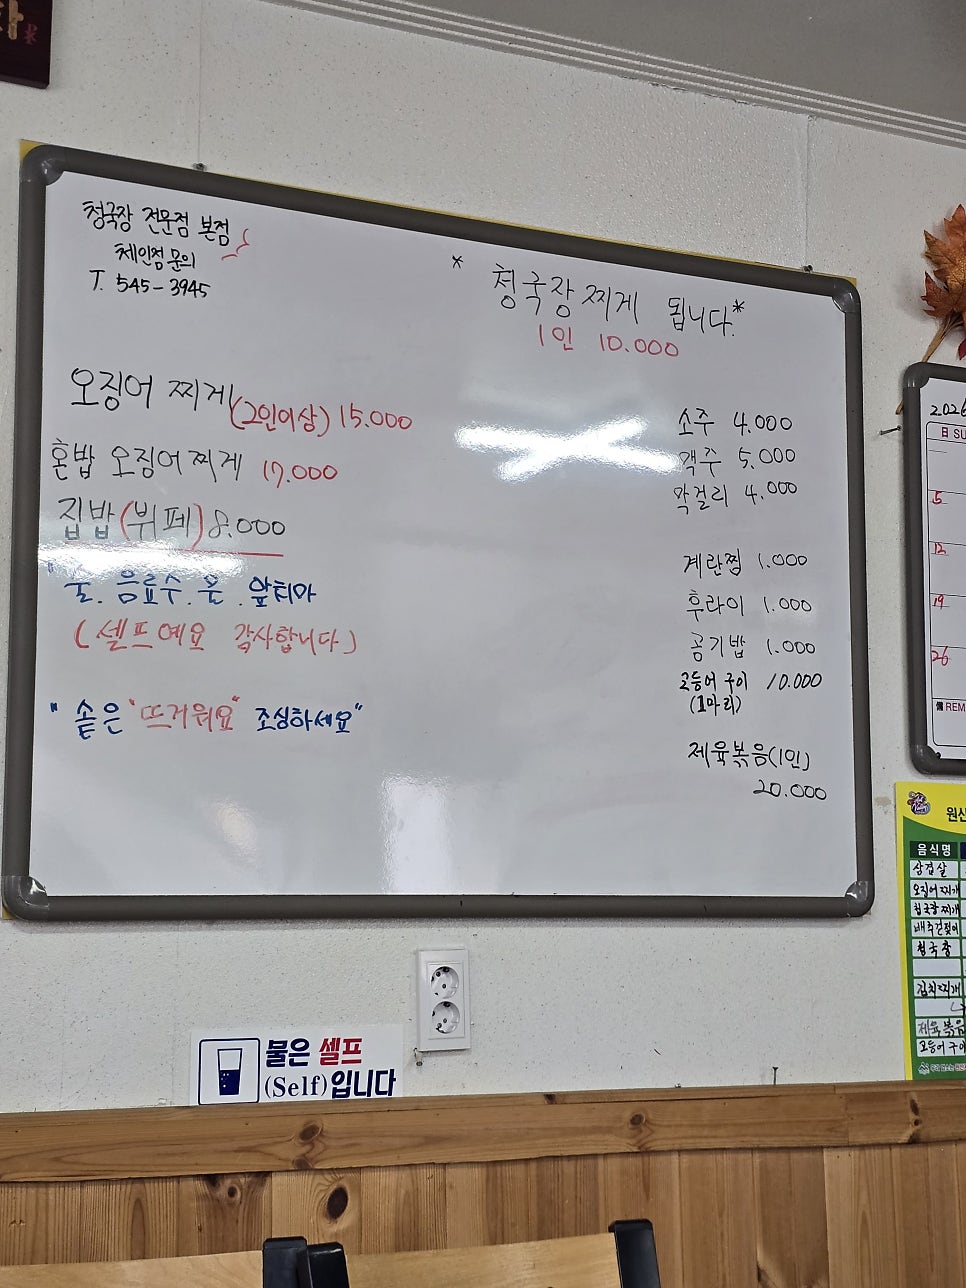 청국장 전문점 본점
체인점 문의
T. 545-3945
* 청국장 찌게 됩니다.*
1인 10.000
오징어 찌게(2인이상) 15.000
혼밥 오징어 찌게 17.000
집밥(뷔페) 8.000
음료수. . 앞치마
(셀프예요 감사합니다)
"솥은 "뜨거워요" 조심하세요"
소주 4.000
맥주 5.000
막걸리 4.000
계란찜 1.000
후라이 1.000
공기밥 1.000
고등어 구이 10.000
(1마리)
제육볶음(1인)
20.000
2026
日 SU
5
12
19
26
備 REM
원산
음식명
삼겹살
오징어찌개
청국장찌개
청국장
김치찌개
제육볶음
고등어구이
물은 셀프
(Self)입니다